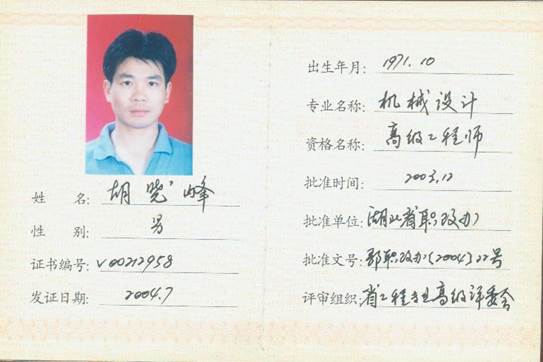 姓 名: 胡晓峰
性 别: 男
证书编号: V00212958
发证日期: 2004.7
出生年月: 1971.10
专业名称: 机械设计
资格名称: 高级工程师
批准时间: 2003.12
批准单位: 湖北省职改办
批准文号: 鄂职改办(2004)22号
评审组织: 省工程专业高级评委会